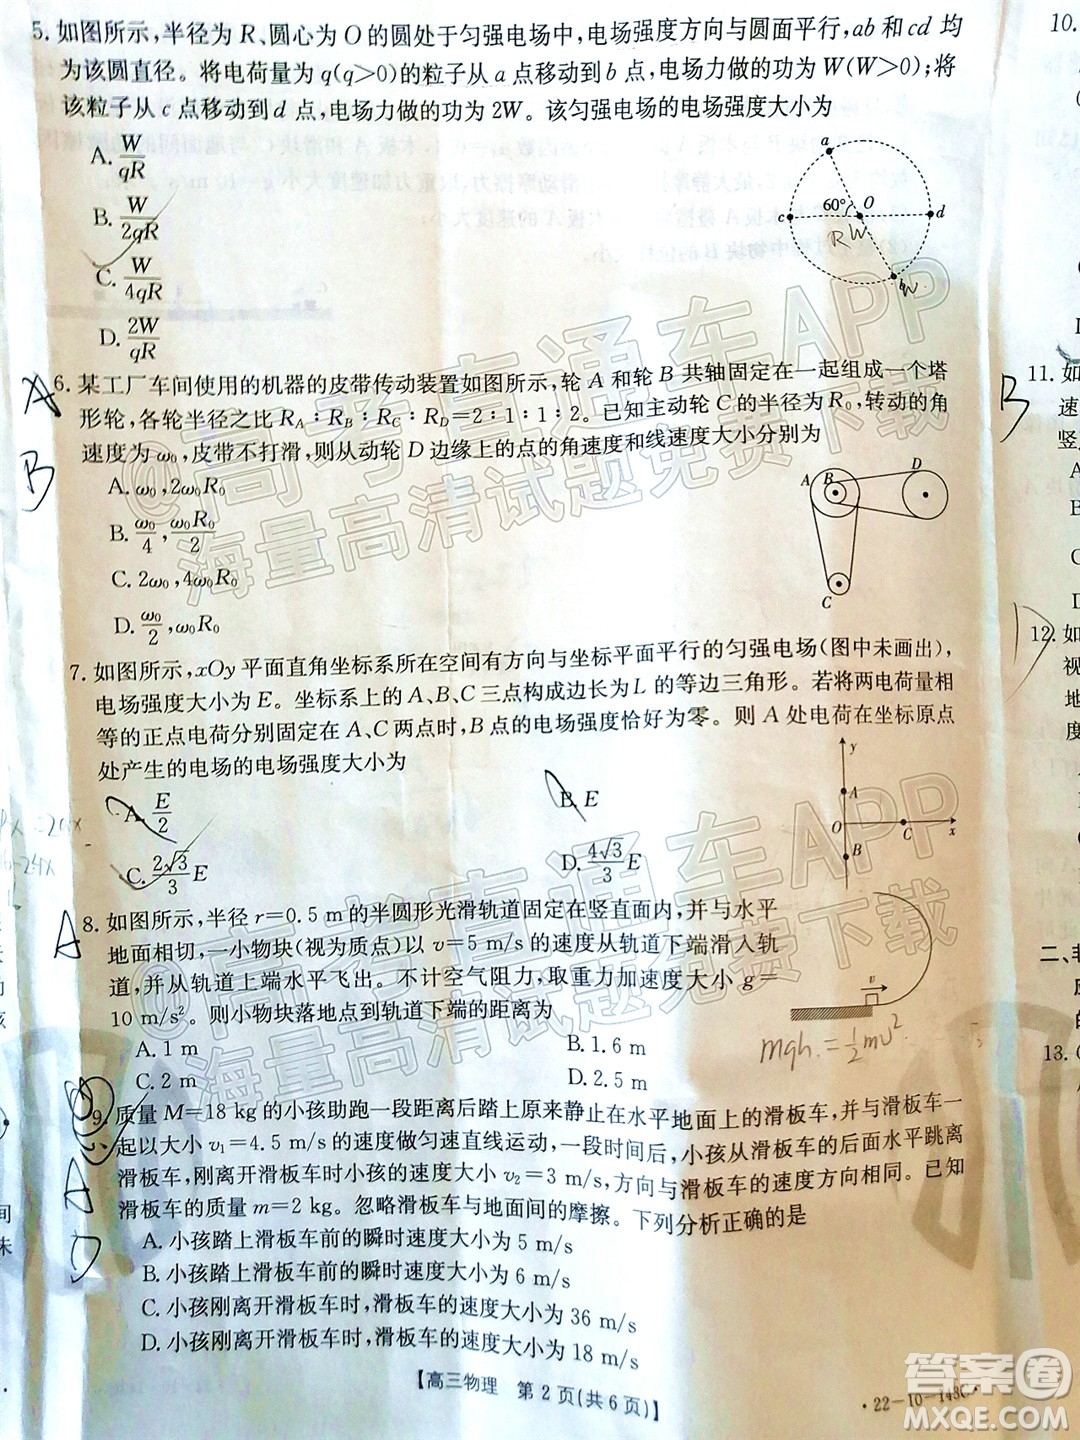 5. 如图所示,半径为 R、圆心为 O 的圆处于匀强电场中,电场强度方向与圆面平行,ab 和 cd 均
为该圆直径。将电荷量为 q(q>0)的粒子从 a 点移动到 b 点,电场力做的功为 W(W>0);将
该粒子从 c 点移动到 d 点,电场力做的功为 2W。该匀强电场的电场强度大小为
A. W/qR
B. W/2qR
C. W/4qR
D. 2W/qR
a
60°
O
c
d
R
W
6. 某工厂车间使用的机器的皮带传动装置如图所示,轮 A 和轮 B 共轴固定在一起组成一个塔
形轮,各轮半径之比 R_A : R_B : R_C : R_D=2 : 1 : 1 : 2。已知主动轮 C 的半径为 R₀,转动的角
速度为 ω₀,皮带不打滑,则从动轮 D 边缘上的点的角速度和线速度大小分别为
A. ω₀,2ω₀R₀
B. ω₀/4,ω₀R₀/2
C. 2ω₀,4ω₀R₀
D. ω₀/2,ω₀R₀
A
B
D
C
A
B
7. 如图所示,xOy 平面直角坐标系所在空间有方向与坐标平面平行的匀强电场(图中未画出),
电场强度大小为 E。坐标系上的 A、B、C 三点构成边长为 L 的等边三角形。若将两电荷量相
等的正点电荷分别固定在 A、C 两点时,B 点的电场强度恰好为零。则 A 处电荷在坐标原点
处产生的电场的电场强度大小为
A. E/2
B. E
C. 2√3/3 E
D. 4√3/3 E
y
A
O
C
x
B
8. 如图所示,半径 r=0.5 m 的半圆形光滑轨道固定在竖直面内,并与水平
地面相切,一小物块(视为质点)以 v=5 m/s 的速度从轨道下端滑入轨
道,并从轨道上端水平飞出。不计空气阻力,取重力加速度大小 g=
10 m/s²。则小物块落地点到轨道下端的距离为
A. 1 m
B. 1.6 m
C. 2 m
D. 2.5 m
A
v
mgh.=½mv²
9. 质量 M=18 kg 的小孩助跑一段距离后踏上原来静止在水平地面上的滑板车,并与滑板车一
起以大小 v₁=4.5 m/s 的速度做匀速直线运动,一段时间后,小孩从滑板车的后面水平跳离
滑板车,刚离开滑板车时小孩的速度大小 v₂=3 m/s,方向与滑板车的速度方向相同。已知
滑板车的质量 m=2 kg。忽略滑板车与地面间的摩擦。下列分析正确的是
A. 小孩踏上滑板车前的瞬时速度大小为 5 m/s
B. 小孩踏上滑板车前的瞬时速度大小为 6 m/s
C. 小孩刚离开滑板车时,滑板车的速度大小为 36 m/s
D. 小孩刚离开滑板车时,滑板车的速度大小为 18 m/s
A
D
【高三物理 第 2 页(共 6 页)】
·22-10-148C·
10.
11. 如
速
竖
A
B
C
D
B
12. 如
视
地
度
D
二、非
13.
@高考直通车APP
海量高清试题免费下载
@高考直通车APP
海量高清试题免费下载
答案圈
MXQE.COM